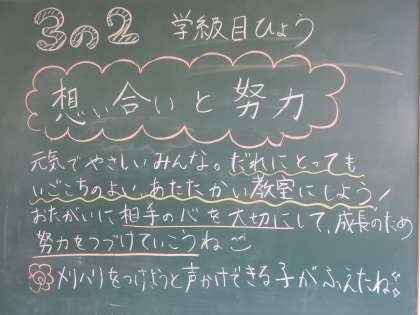 3の2 学級目ひょう
想い合いと努力
元気でやさしいみんな。だれにとっても
いごこちのよい、あたたかい教室にしよう!
おたがいに相手の心を大切にして、成長のため
努力をつづけていこうね
メリハリをつけようと声かけできる子がふえたね